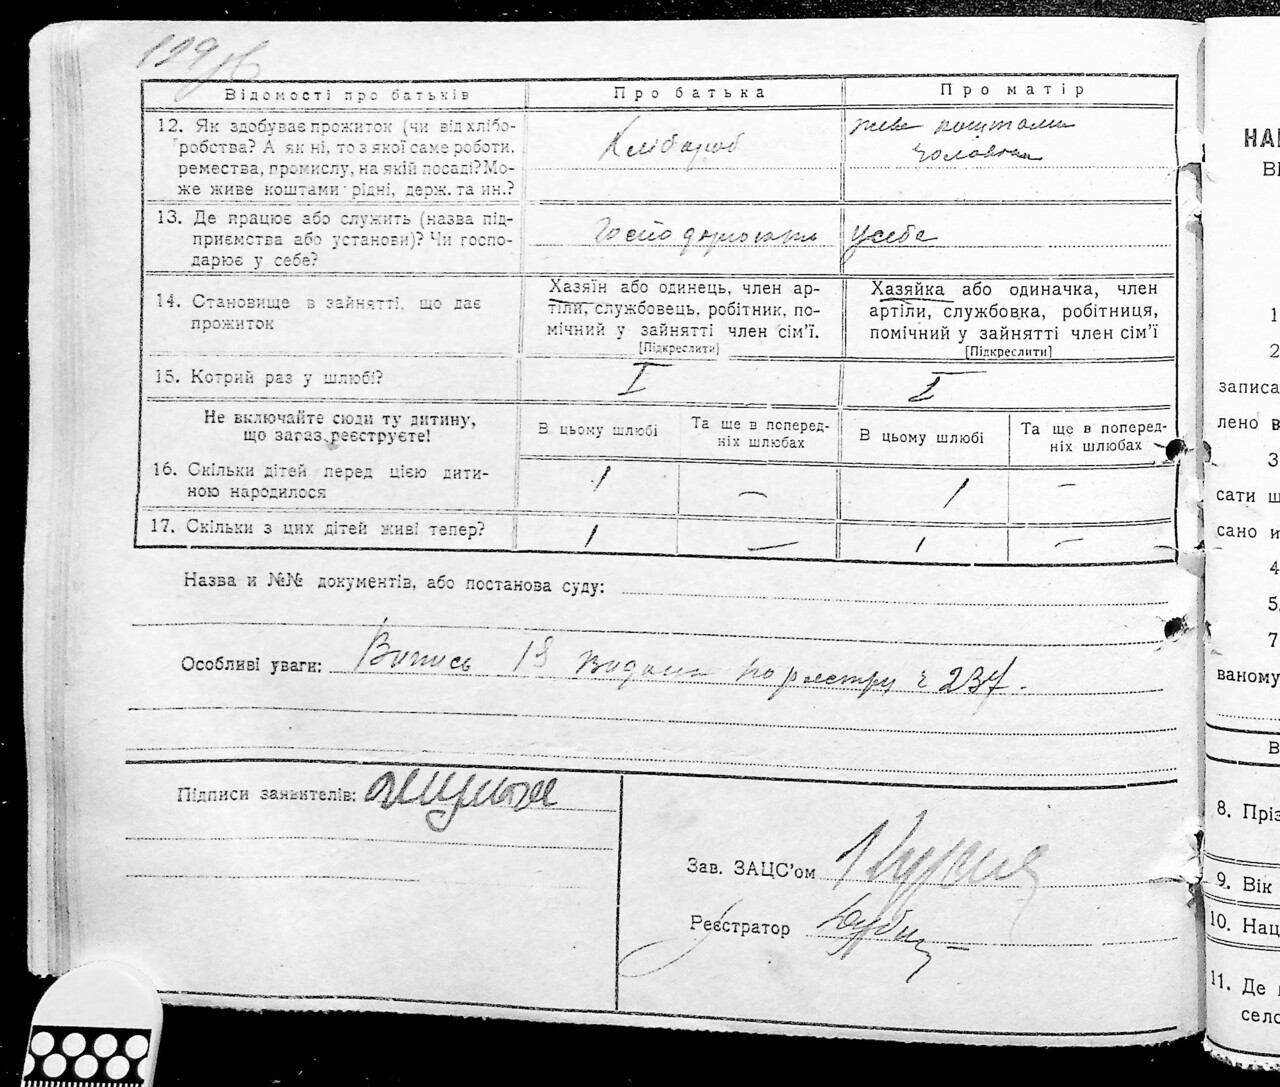 129зв
Відомості про батьків
Про батька
Про матір
12. Як здобуває прожиток (чи від хлібо-
робства? А як ні, то з якої саме роботи,
ремества, промислу, на якій посаді? Мо-
же живе коштами рідні, держ. та ин.?
Хлібороб
живе коштами
чоловіка
13. Де працює або служить (назва під-
приємства або установи)? Чи госпо-
дарює у себе?
у себе
14. Становище в зайнятті, що дає
прожиток
Хазяїн або одинець, член ар-
тіли, службовець, робітник, по-
мічний у зайнятті член сім’ї.
[Підкреслити]
Хазяйка або одиначка, член
артіли, службовка, робітниця,
помічний у зайнятті член сім’ї
[Підкреслити]
15. Котрий раз у шлюбі?
I
I
Не включайте сюди ту дитину,
що зараз реєструєте!
В цьому шлюбі
Та ще в поперед-
ніх шлюбах
В цьому шлюбі
Та ще в поперед-
ніх шлюбах
16. Скільки дітей перед цією дити-
ною народилося
1
–
1
–
17. Скільки з цих дітей живі тепер?
1
–
1
–
Назва и №№ документів, або постанова суду:
Особливі уваги: Випись 13 видана по реєстру ч 237.
Підписи заявителів:
Зав. ЗАЦС’ом
Реєстратор
НАІ
ВІ
1
2
записа
лено в
3
сати ш
сано и
4
5.
7
ваному
В
8. Пріз
9. Вік
10. Нац
11. Де
село